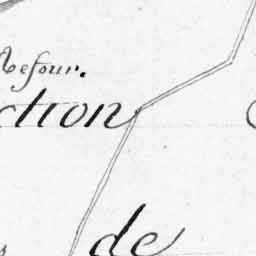 Refour.
ction
de